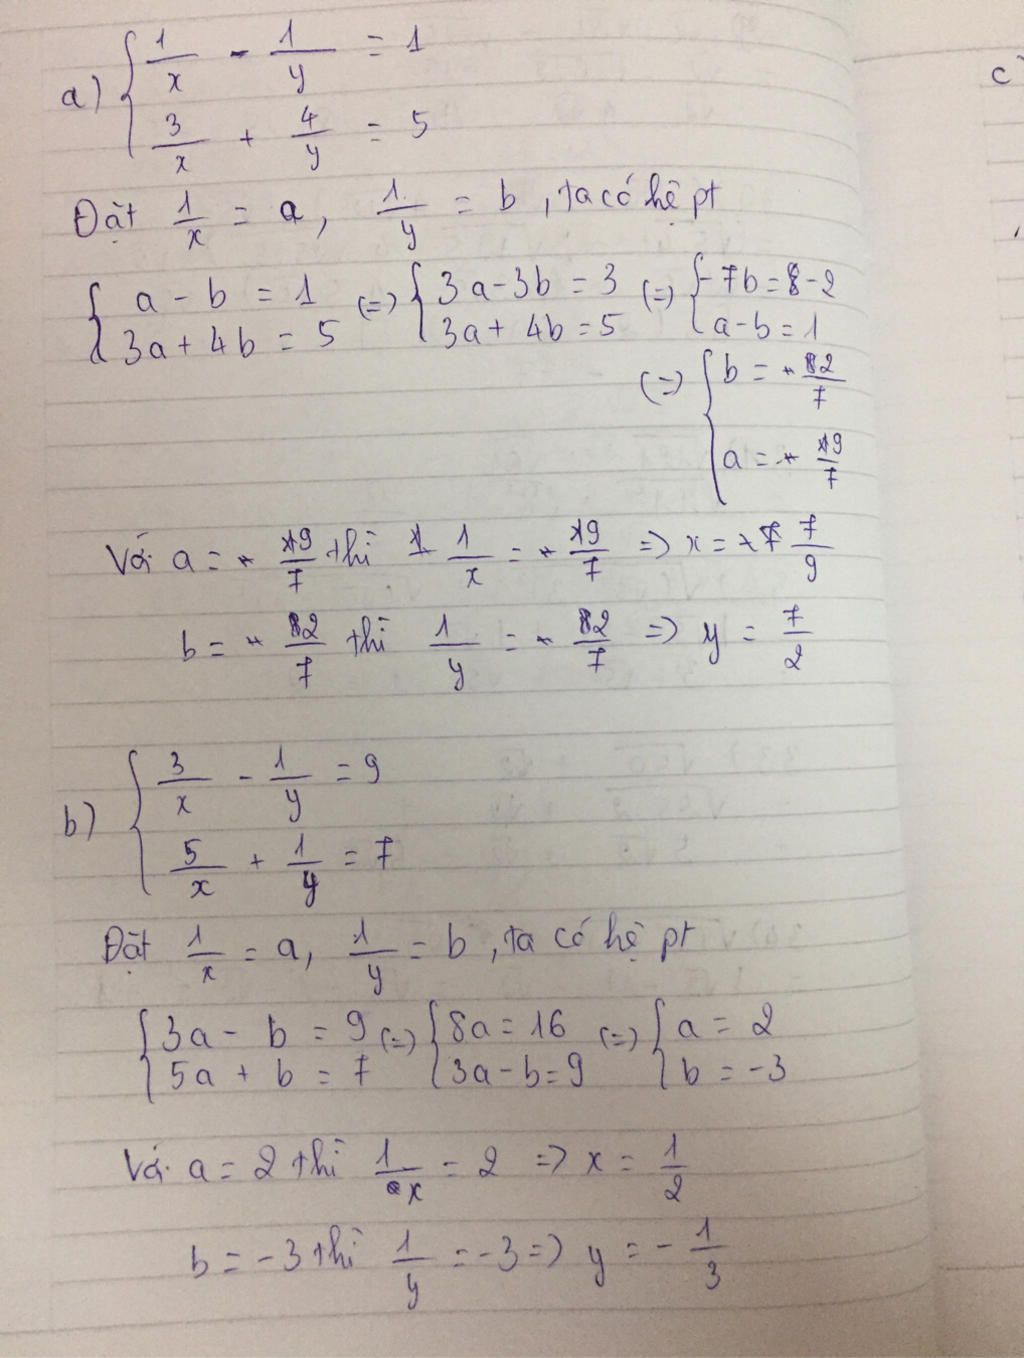 a) { 1/x - 1/y = 1
3/x + 4/y = 5
Đặt 1/x = a, 1/y = b, ta có hệ pt
{ a - b = 1 (=) { 3a - 3b = 3 (=) { -7b = -2
3a + 4b = 5 3a + 4b = 5 a - b = 1
(=) { b = 2/7
a = 9/7
Với a = 9/7 thì 1/x = 9/7 => x = 7/9
b = 2/7 thì 1/y = 2/7 => y = 7/2
b) { 3/x - 1/y = 9
5/x + 1/y = 7
Đặt 1/x = a, 1/y = b, ta có hệ pt
{ 3a - b = 9 (=) { 8a = 16 (=) { a = 2
5a + b = 7 3a - b = 9 b = -3
Với a = 2 thì 1/x = 2 => x = 1/2
b = -3 thì 1/y = -3 => y = - 1/3
c)